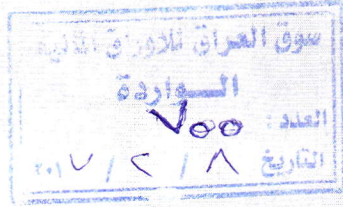 سوق العراق للاوراق المالية
الـــواردة
العدد : ٧٥٥
التاريخ ٨ / ٢ / ٢٠١٧